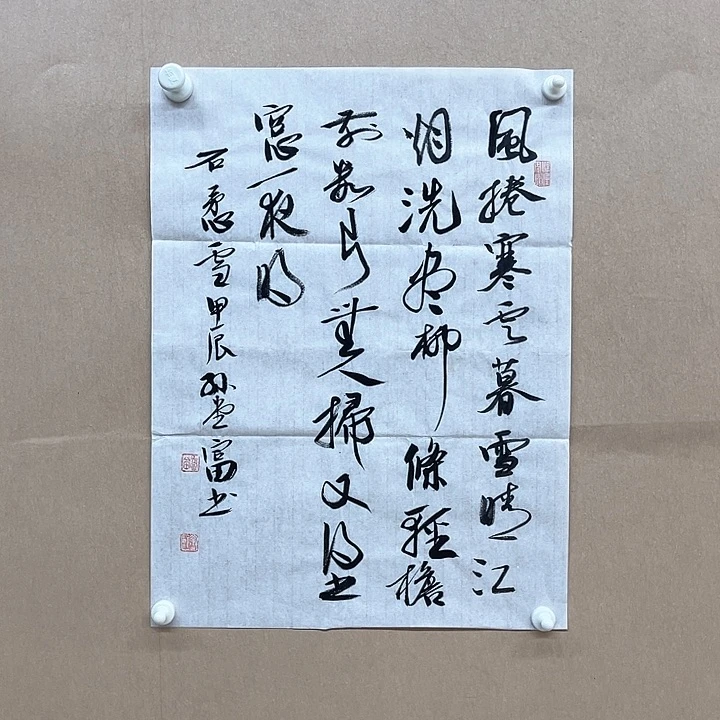 風捲寒云暮雪晴江
烟洗盡柳條輕檐
前數片無人掃又得書
窗一夜明
雪甲辰孫富书